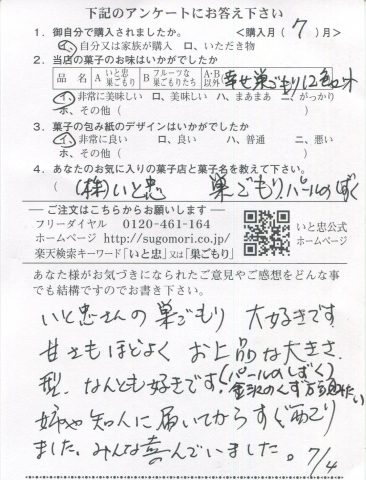 下記のアンケートにお答え下さい
1. 御自分で購入されましたか。 <購入月( 7 )月>
イ、自分又は家族が購入 ロ、いただき物
2. 当店の菓子のお味はいかがでしたか
品 名 A いと忠 巣ごもり B フルーツな 巣ごもりたち A・B 以外 幸せ巣ごもり12色セット
イ、非常に美味しい ロ、美味しい ハ、まあまあ ニ、がっかり
ホ、その他 ( )
3. 菓子の包み紙のデザインはいかがでしたか
イ、非常に良い ロ、良い ハ、普通 ニ、悪い
ホ、その他 ( )
4. あなたのお気に入りの菓子店と菓子名を教えて下さい。
( (株)いと忠 巣ごもり、パールのしずく
― ご注文はこちらからお願いします ―
フリーダイヤル 0120-461-164
ホームページ http://sugomori.co.jp/
楽天検索キーワード「いと忠」又は「巣ごもり」
いと忠公式
ホームページ
あなた様がお気づきになられたご意見やご感想をどんな事
でも結構ですのでお書き下さい。
いと忠さんの巣ごもり 大好きです
甘さもほどよく お上品な大きさ、
型、なんとも好きです。(パールのしずく)
姉や知人に届いてからすぐ配り
ました。みんな喜んでいました。 7/4